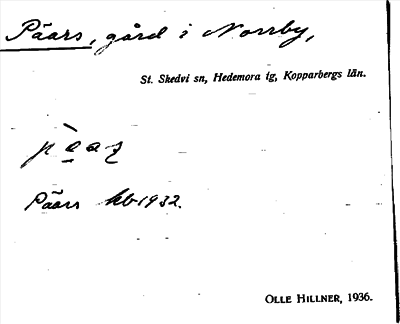 Päars, gård i Norrby,
St. Skedvi sn, Hedemora tg, Kopparbergs län.
Päars hb 1932.
OLLE HILLNER, 1936.